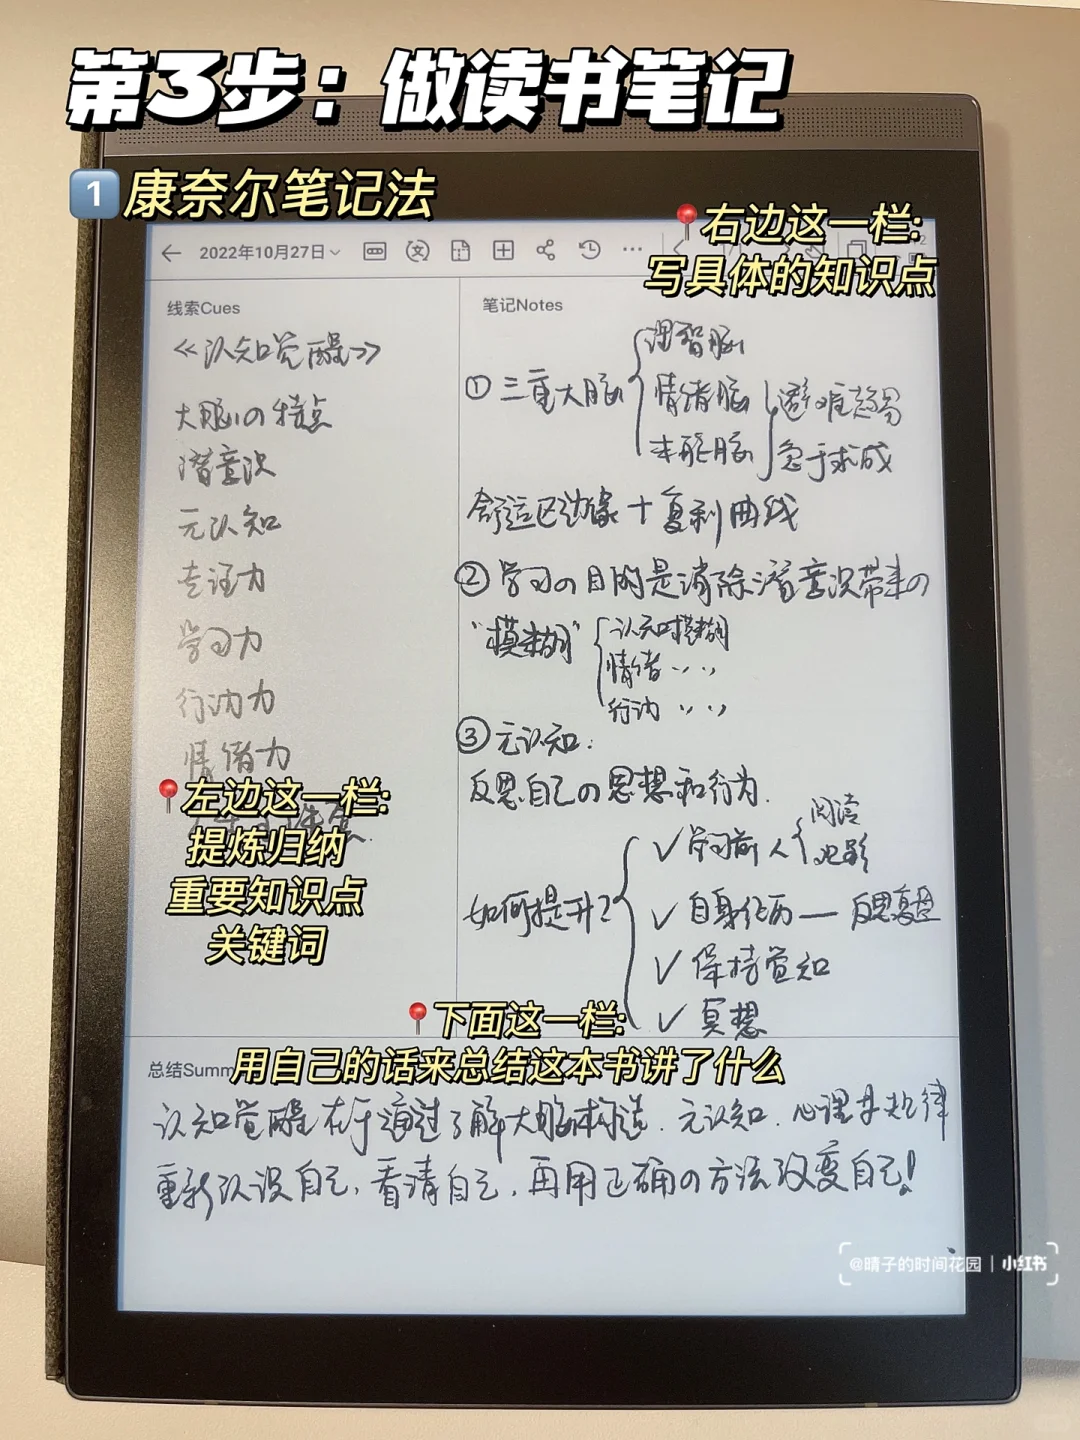 第3步：做读书笔记
1 康奈尔笔记法
📍右边这一栏:
写具体的知识点
2022年10月27日
线索Cues
《认知觉醒》
大脑の特点
潜意识
元认知
专注力
学习力
行动力
情绪力
📍左边这一栏:
提炼归纳
重要知识点
关键词
笔记Notes
① 三重大脑
理智脑
情绪脑
本能脑
避难趋易
急于求成
舒适区边缘+复利曲线
② 学习の目的是消除潜意识带来の
“模糊”
认知模糊
情绪 〃
行动 〃
③ 元认知:
反思自己の思想和行为.
如何提升?
✓ 学习前人
阅读
电影
✓ 自身经历 — 反思复盘
✓ 保持觉知
✓ 冥想
📍下面这一栏:
用自己的话来总结这本书讲了什么
总结Summ
认知觉醒在于通过了解大脑构造.元认知.心理学规律
重新认识自己,看清自己,再用正确の方法改变自己!
@晴子的时间花园 | 小红书